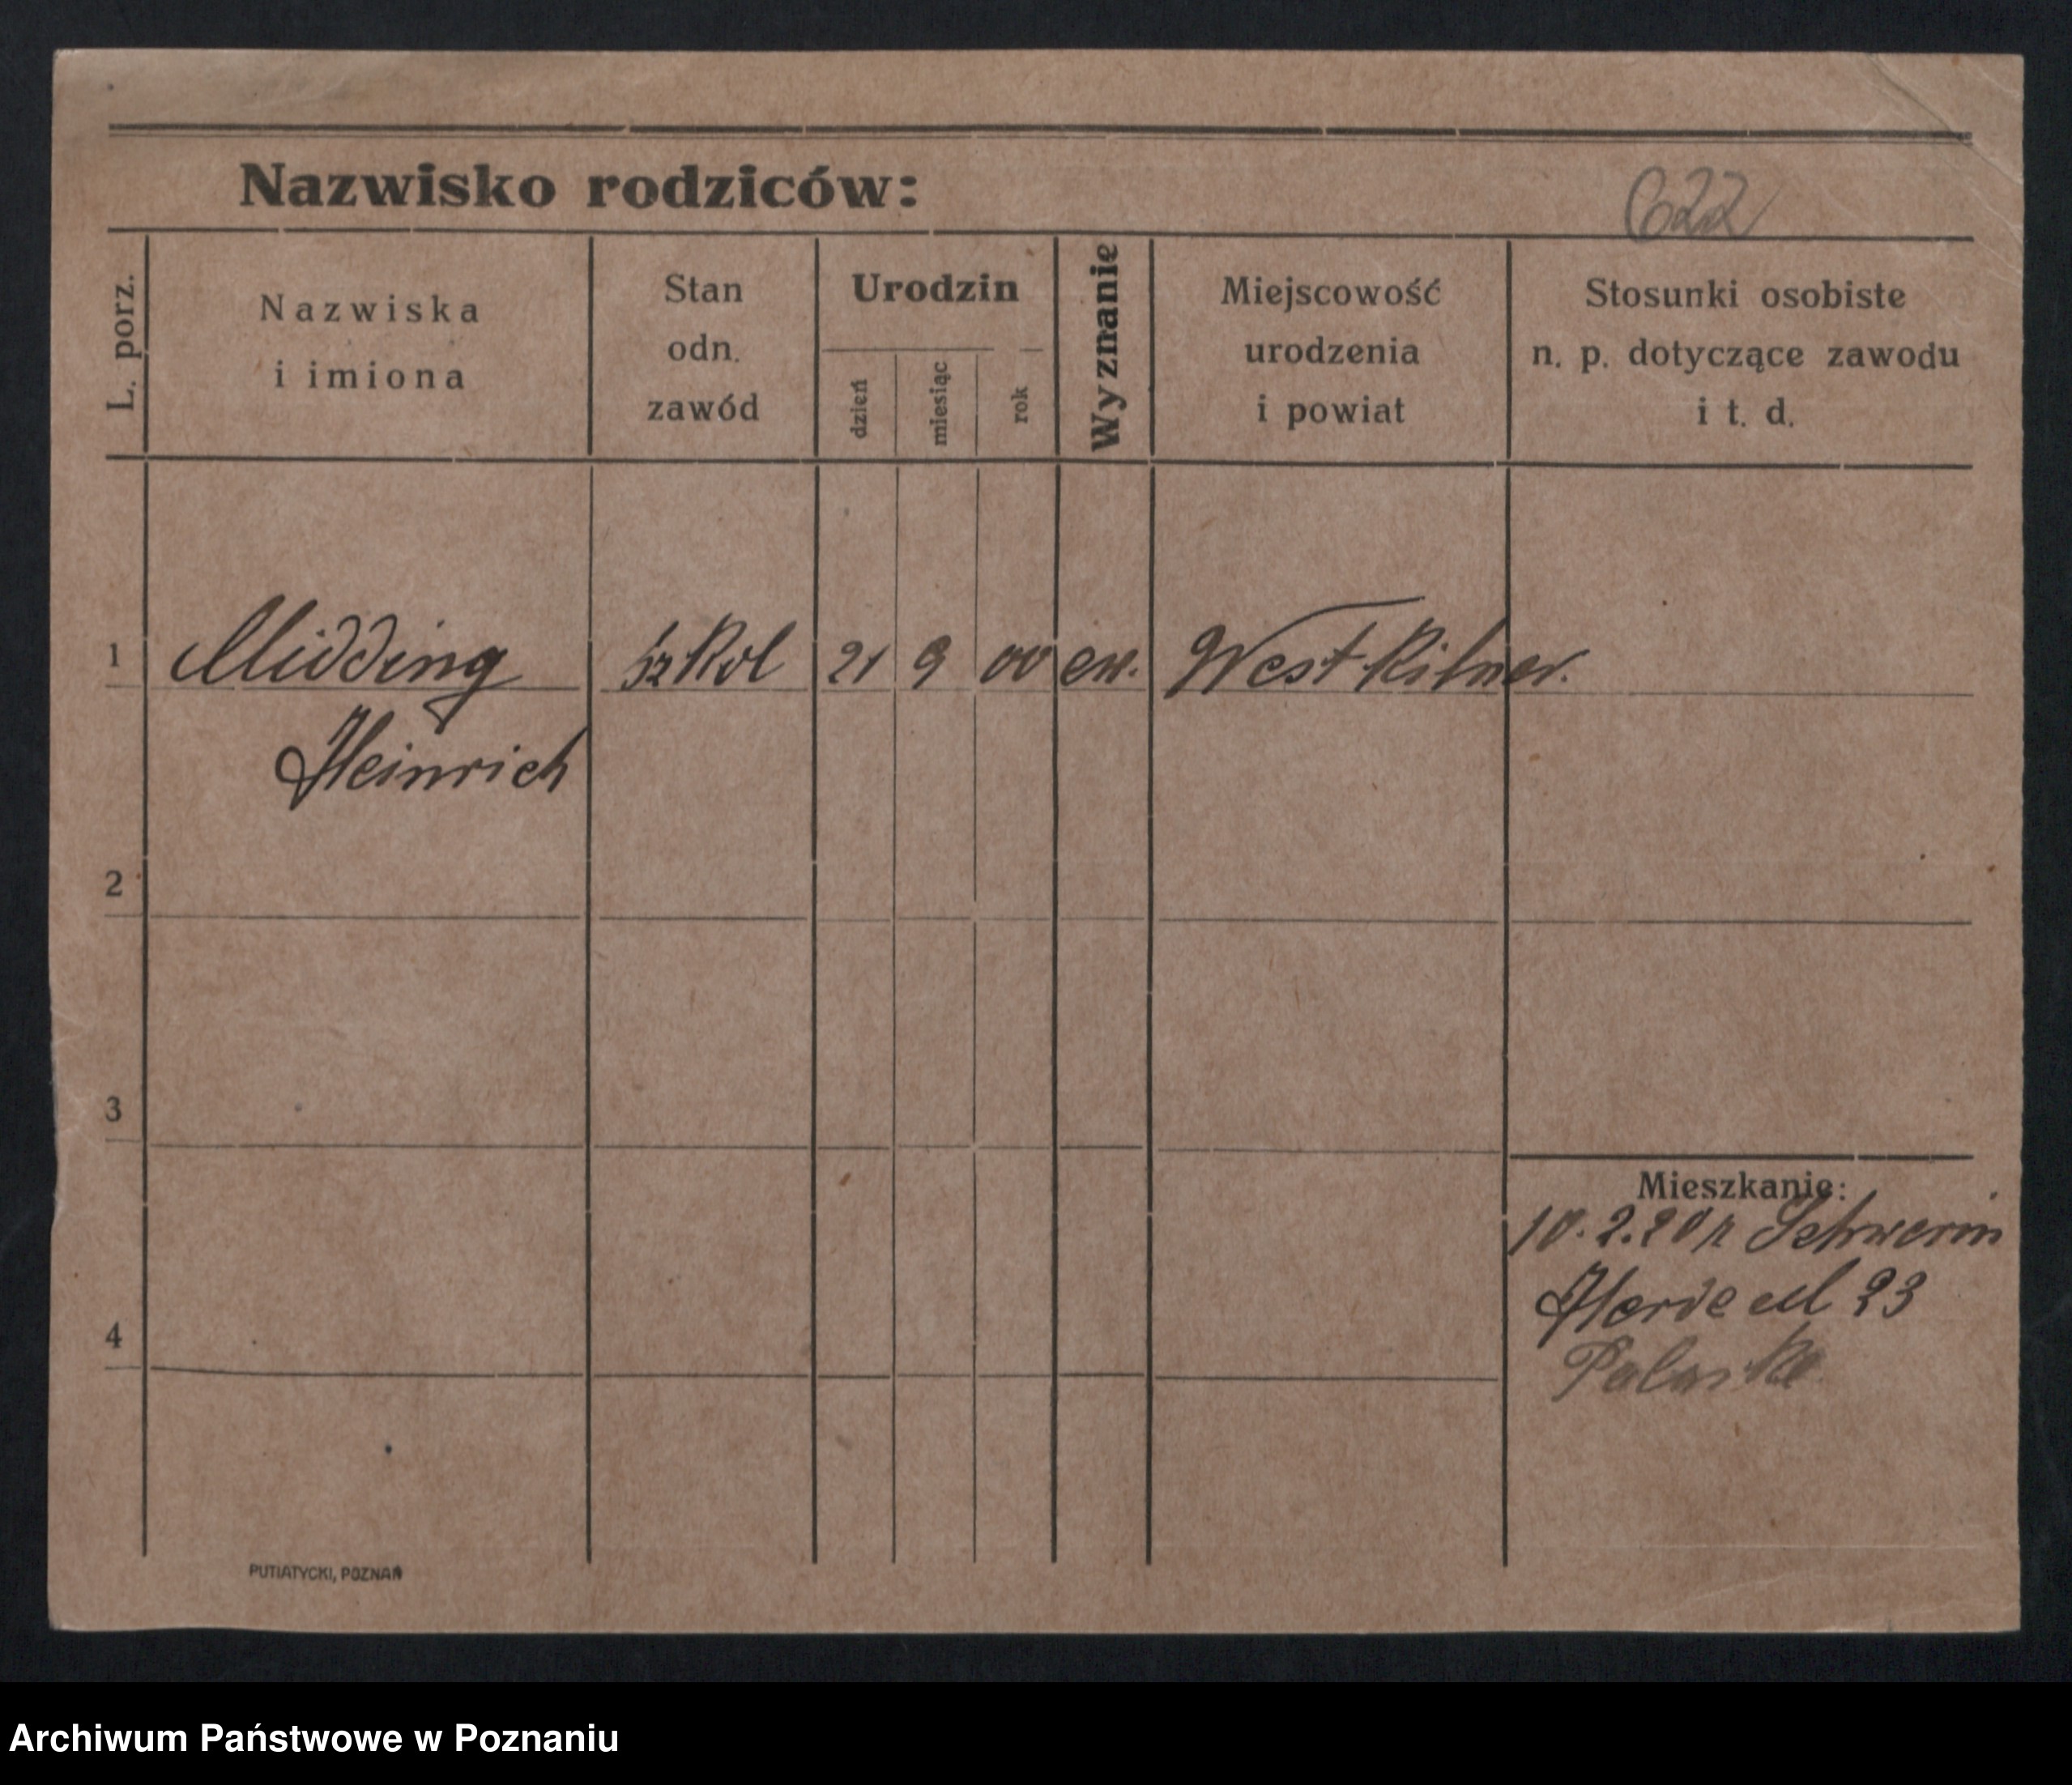 Nazwisko rodziców:
622
L. porz.
Nazwiska
i imiona
Stan
odn.
zawód
Urodzin
dzień
miesiąc
rok
Wyznanie
Miejscowość
urodzenia
i powiat
Stosunki osobiste
n. p. dotyczące zawodu
i t. d.
1 Midding 21 9 00 ew.
Heinrich
2
3
4
Mieszkanie:
10.2.20 Schwerin
23
PUTIATYCKI, POZNAŃ
Archiwum Państwowe w Poznaniu